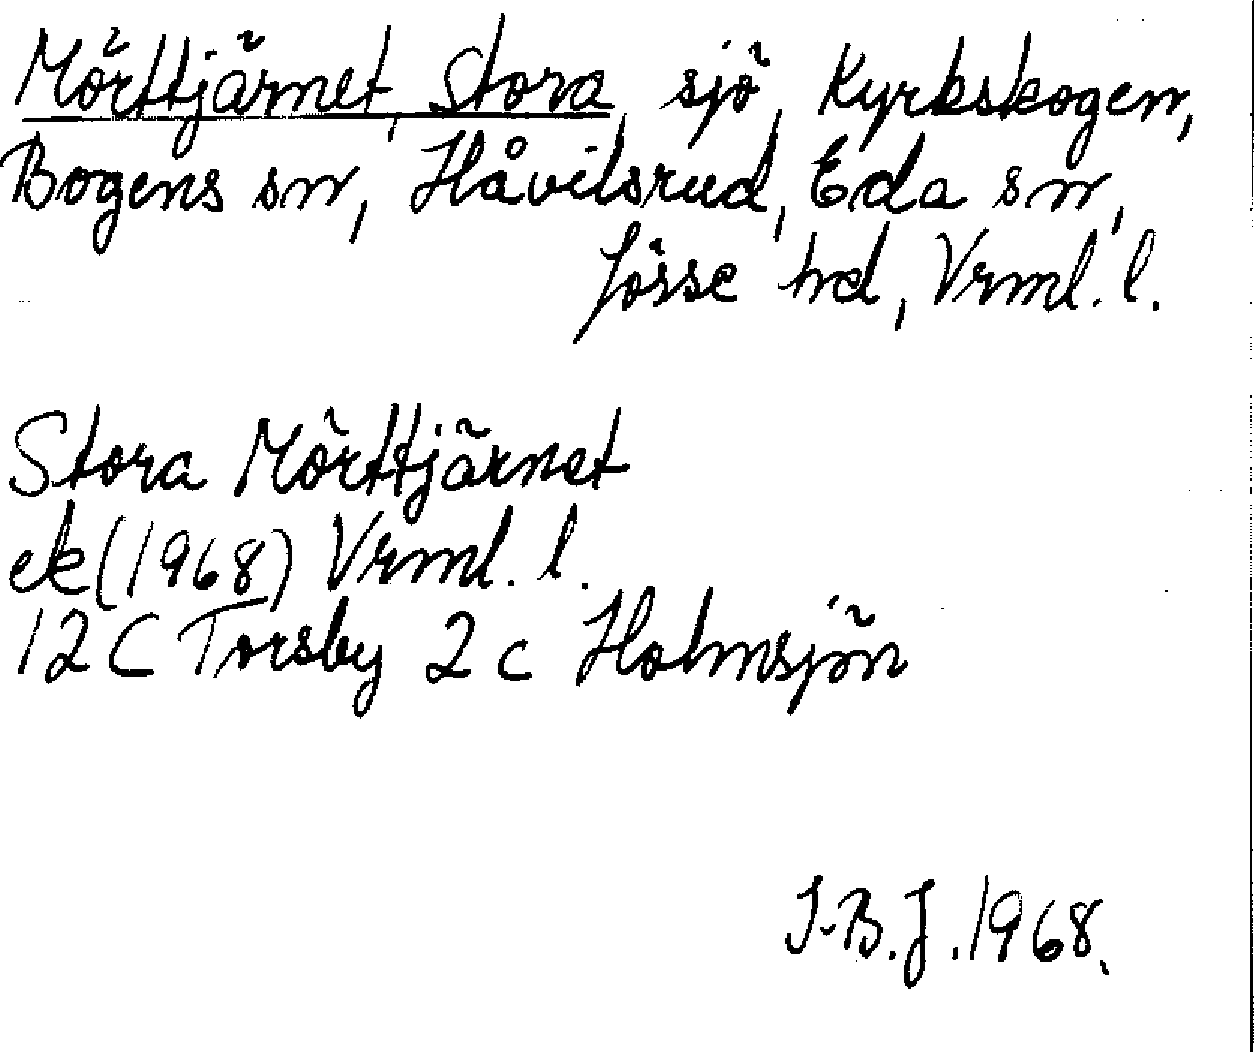 Mörttjärnet, Stora, sjö, Kyrkskogen,
Bogens sn, Håvilsrud, Eda sn,
Jösse hd, Vrml. l.
Stora Mörttjärnet
ek (1968) Vrml. l.
12 C Torsby 2 c Holmsjön
I-B.J. 1968.